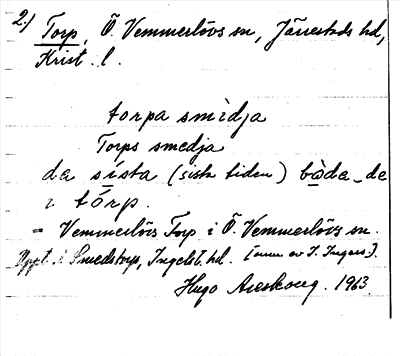 2.) Torp, Ö. Vemmerlövs sn, Järrestads hd,
Krist. l.
torpa smìdja
Torps smedja
da sísta (sista tiden) bàda_de
i tórp.
= Vemmerlövs Torp i Ö. Vemmerlövs sn.
Uppt. i Smedstorp, Ingelst. hd. (anm av I. Ingers).
Hugo Areskoug. 1963.